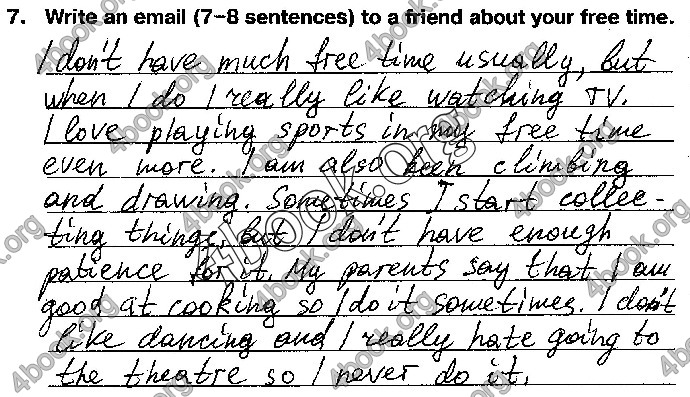 7. Write an email (7–8 sentences) to a friend about your free time.
I don't have much free time usually, but
when I do I really like watching TV.
I love playing sports in my free time
even more. I am also keen climbing
and drawing. Sometimes I start collec-
ting things, but I don't have enough
patience for it. My parents say that I am
good at cooking so I do it sometimes. I don't
like dancing and I really hate going to
the theatre so I never do it.
4book.org